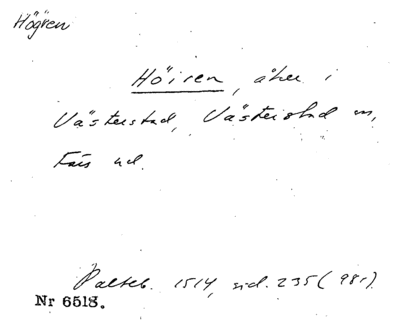 Högren
Höiren, åker i
Västerstad, Västerstad sn,
Färs hd.
Palteb. 1514, sid. 235 (98r).
Nr 6518.